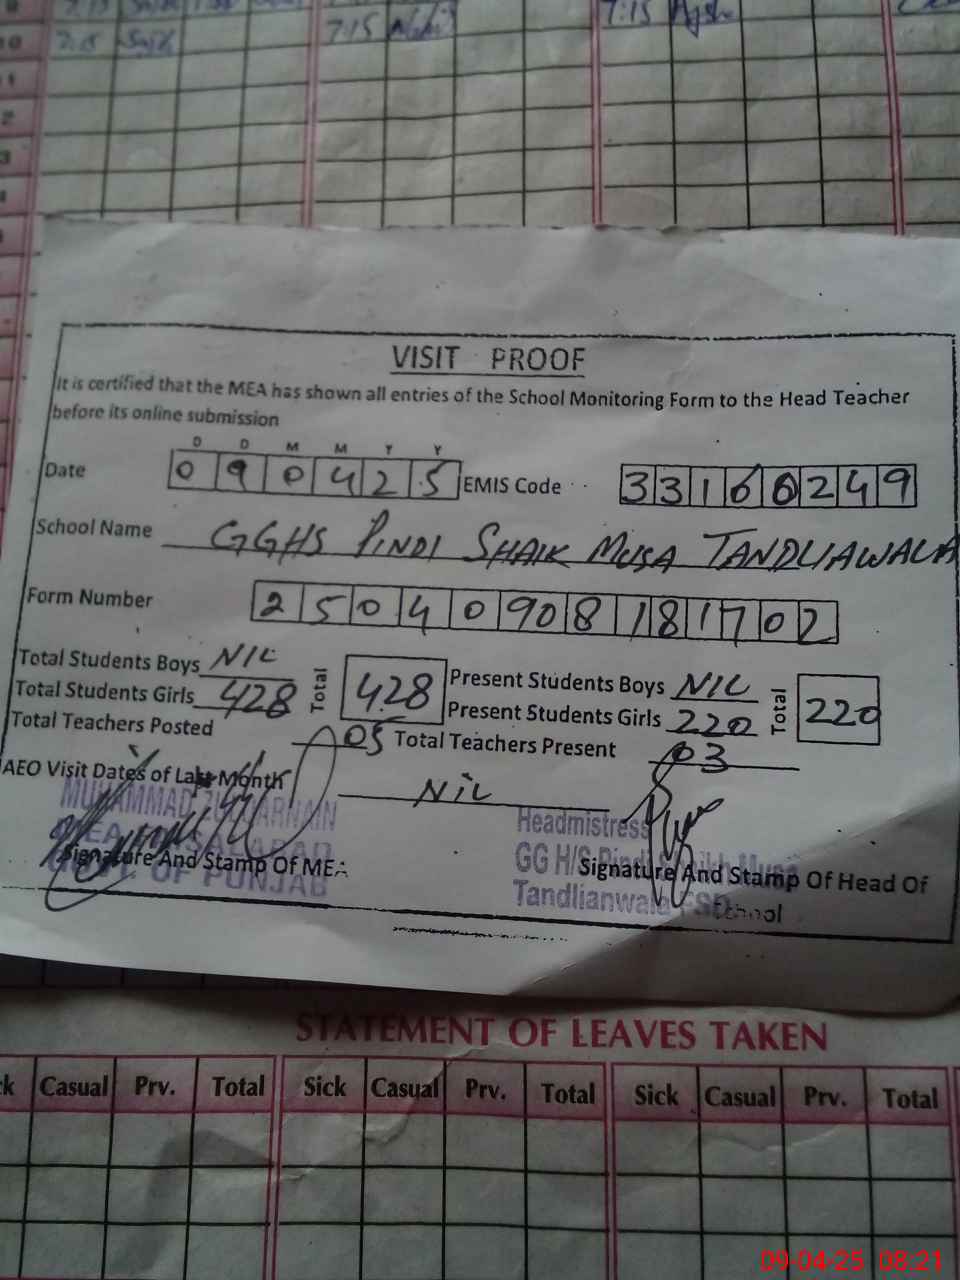 7:15
7:15 Aysha
10 7:15 Sajid 7:15
VISIT PROOF
It is certified that the MEA has shown all entries of the School Monitoring Form to the Head Teacher
before its online submission
D D M M Y Y
Date 0 9 0 4 2 5 EMIS Code 3 3 1 6 0 2 4 9
School Name GGHS PINDI SHAIK MUSA TANDLIAWALA
Form Number 2 5 0 4 0 9 0 8 1 8 1 7 0 2
Total Students Boys NIL Total 428 Present Students Boys NIL Total 220
Total Students Girls 428 Present Students Girls 220
Total Teachers Posted 05 Total Teachers Present 03
AEO Visit Dates of Last Month NIL
MUHAMMAD ZULQARNAIN
MEA FAISALABAD
GOVT. OF PUNJAB
Signature And Stamp Of MEA
Headmistress
GG H/S Pindi Sheikh Musa
Tandlianwala FSD
Signature And Stamp Of Head Of
School
STATEMENT OF LEAVES TAKEN
Casual Prv. Total Sick Casual Prv. Total Sick Casual Prv. Total
09-04-25 08:21